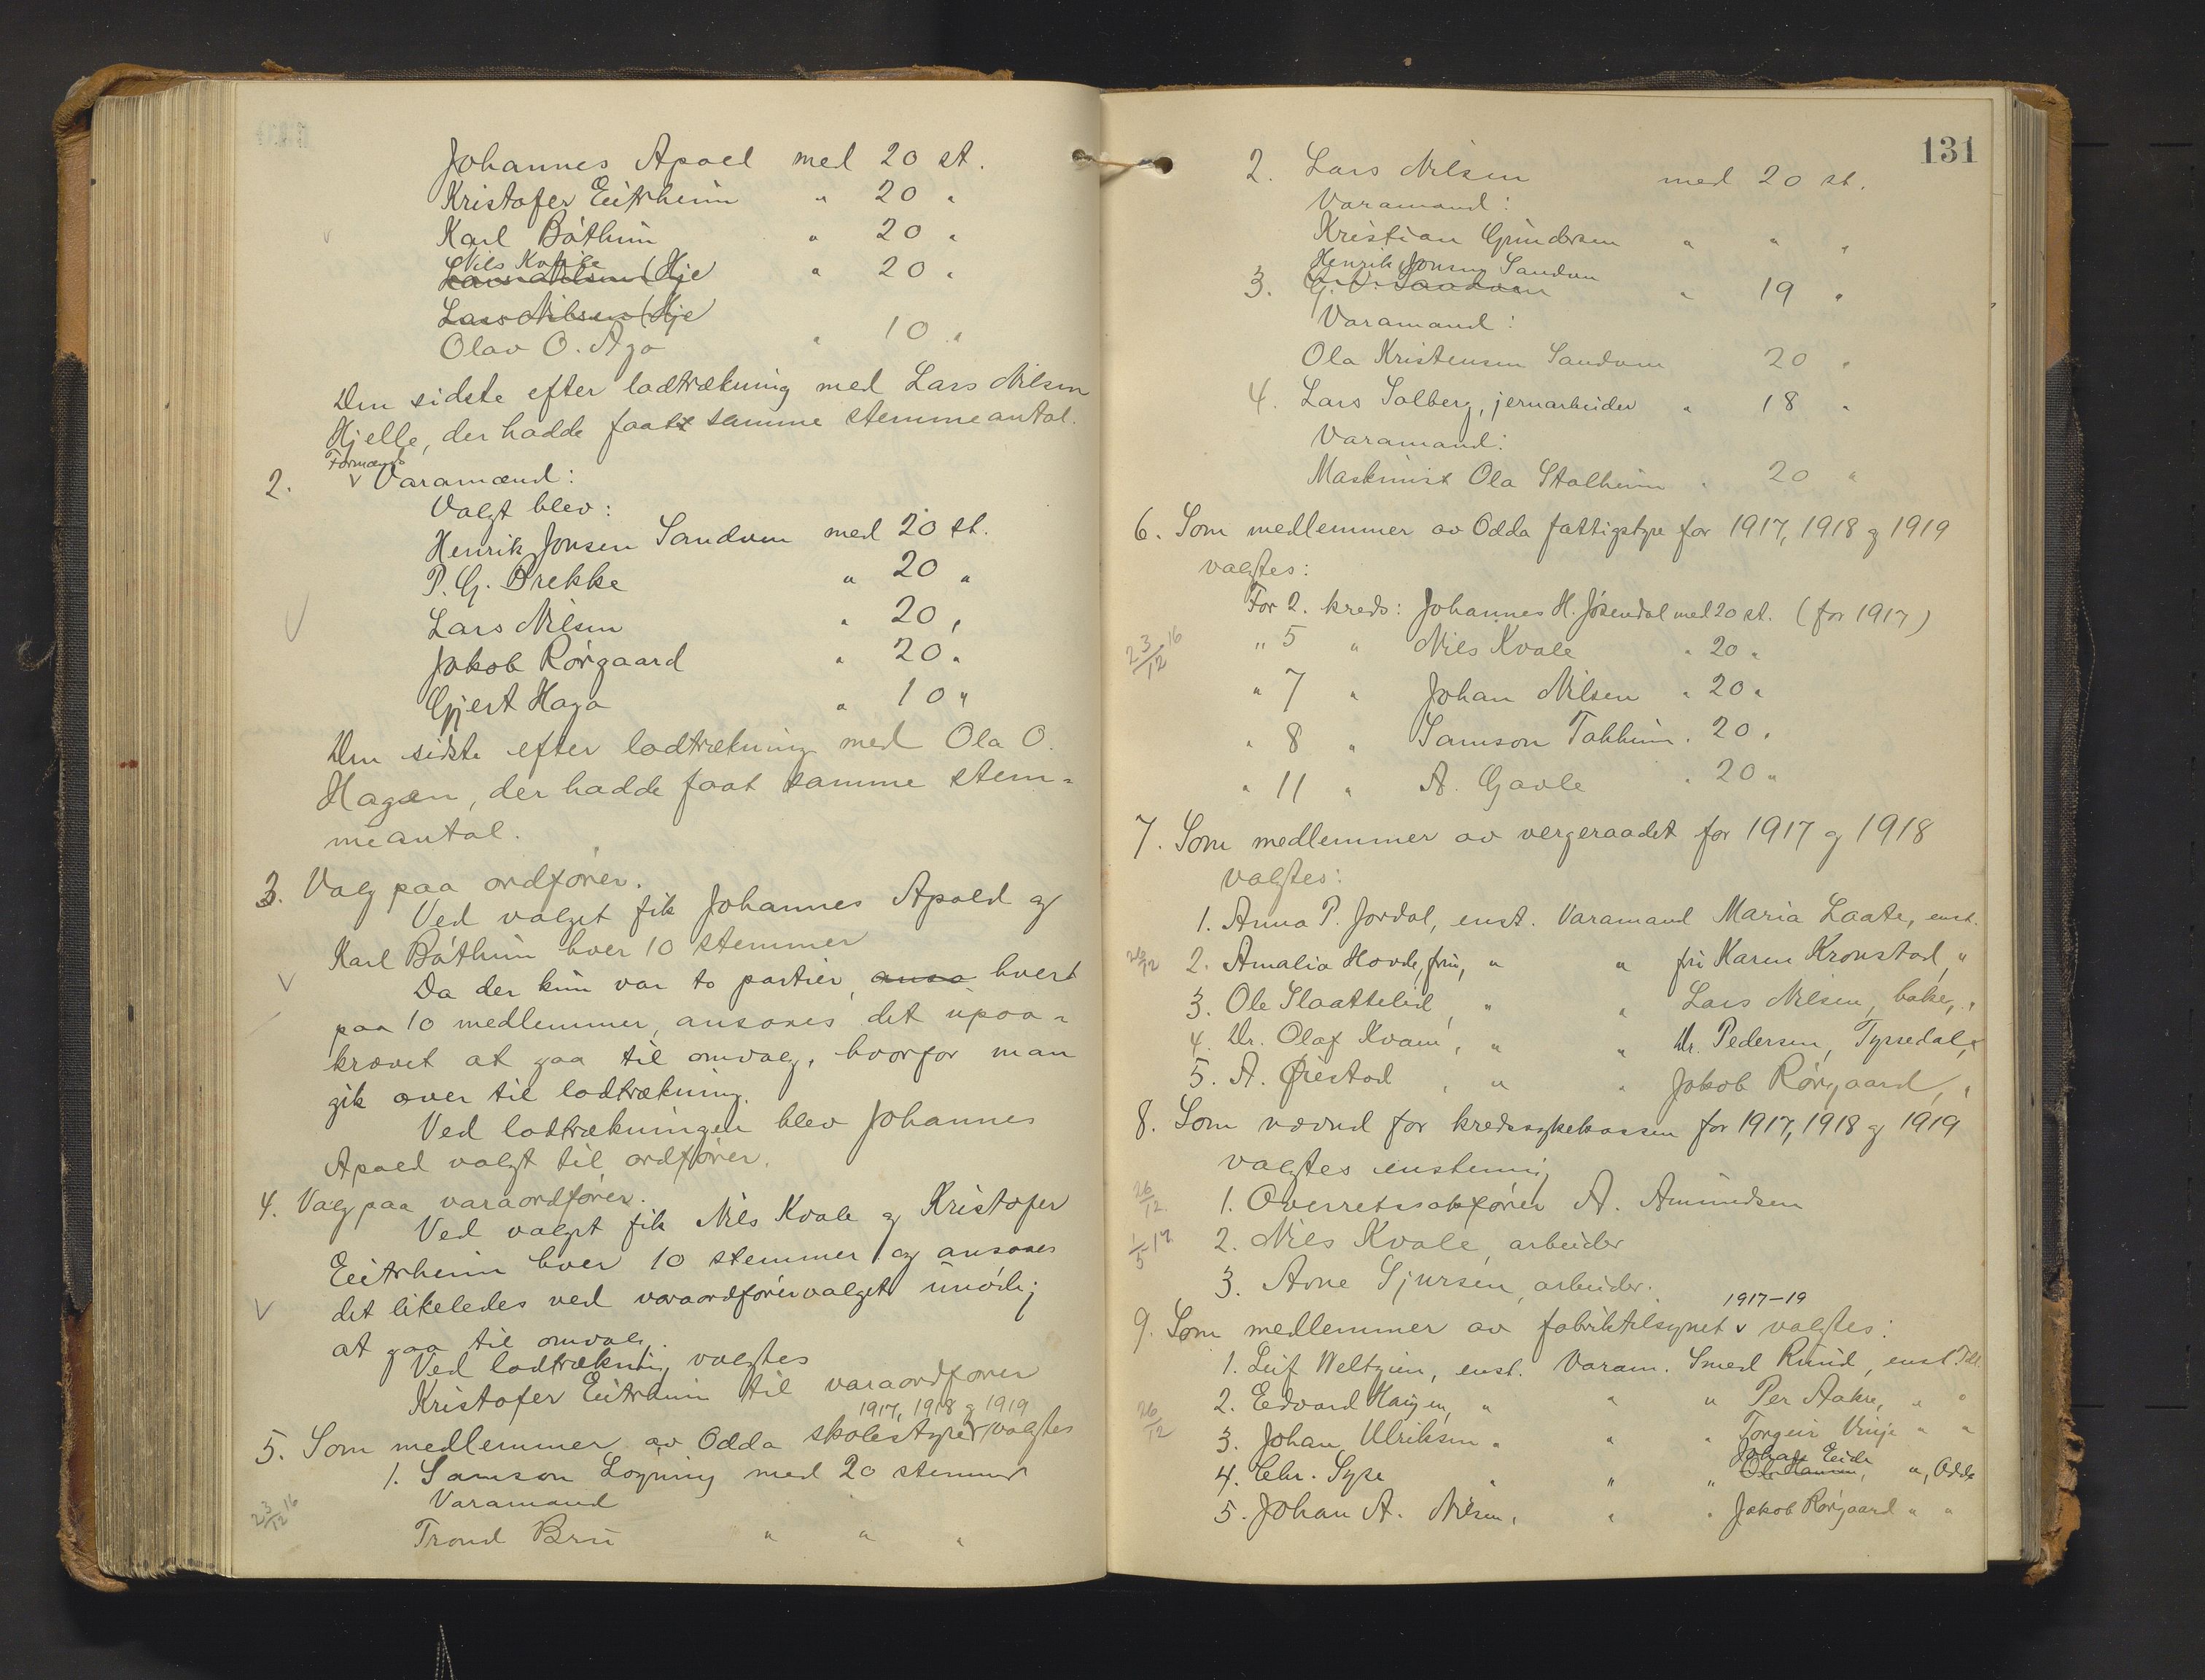 Johannes Apold med 20 st.
Kristofer Eitrheim " 20 "
Karl Bóthun " 20 "
Nils Kvale
Lars Nilsen (Hje " 20 "
Lars Nilsen (Hje
Olav O. Aga " 10 "
Den sidste efter lodtrækning med Lars Nilsen
Hjelle, der hadde faat samme stemmeantal.
Formænds
2. v Varamænd:
Valgt blev:
Henrik Jonsen Sandven med 20 st.
P. G. Brekke " 20 "
Lars Nilsen " 20 "
Jakob Rórgaard " 20 "
Gjert Haga " 10 "
Den sidste efter lodtrækning med Ola O.
Hagen, der hadde faat samme stem=
meantal.
3. Valg paa ordfórer.
Ved valget fik Johannes Apold og
Karl Bóthun hver 10 stemmer
Da der kun var to partier, ansa hvert
paa 10 medlemmer, ansaaes det upaa=
krævet at gaa til omvalg, hvorfor man
gik over til lodtrækning.
Ved lodtrækningen blev Johannes
Apold valgt til ordfórer.
4. Valg paa varaordfórer.
Ved valget fik Nils Kvale og Kristofer
Eitrheim hver 10 stemmer og ansaaes
det likeledes ved varaordfórervalget unódig
at gaa til omvalg.
Ved lodtrækning valgtes
Kristofer Eitrheim til varaordfórer
1917, 1918 og 1919
5. Som medlemmer av Odda skolestyre v valgtes
1. Samson Logning med 20 stemmer
Varamand
23/12 16
Trond Bru " " "
131
2. Lars Nilsen med 20 st.
Varamand:
Kristian Gundersen " " "
Henrik Jonsen Sandven
3. " 19 "
Varamand:
Ola Kristensen Sandven 20 "
4. Lars Solberg, jernarbeider " 18 "
Varamand:
Maskinist Ola Stalheim " 20 "
6. Som medlemmer av Odda fattigstyre for 1917, 1918 og 1919
valgtes:
For 2. kreds: Johannes H. Jósendal med 20 st. (for 1917)
23/12 16 " 5 " Nils Kvale " 20 "
" 7 " Johan Nilsen " 20 "
" 8 " Samson Tokheim " 20 "
" 11 " A. Gavle " 20 "
7. Som medlemmer av vergeraadet for 1917 og 1918
valgtes:
1. Anna P. Jordal, enst. Varamand Maria Laate, enst.
26/12 2. Amalia Hovde, fru, " " fru Karen Kronstad, "
3. Ole Slaattelid, " " Lars Nilsen, baker, "
4. Dr. Olaf Kvam, " " Dr. Pedersen, Tyssedal, "
5. A. Øiestad, " " Jakob Rórgaard, "
8. Som nævnd for kredssykekassen for 1917, 1918 og 1919
valgtes enstemmig
26/12. 1. Overretssakfórer A. Amundsen
1/5 17 2. Nils Kvale, arbeider
3. Arne Sjursen, arbeider.
1917-19
9. Som medlemmer av fabriktilsynet v valgtes:
1. Leif Weltzien, enst. Varam. Smed Ruud, enst. Tdl.
2. Edvard Haugen, " " " Per Aakre, " "
26/12
3. Johan Ulriksen " " " Torgeir Vinje " "
Johan Eide
4. Chr. Syse " " " Ole Hansen, ", Odda
5. Johan A. Nilsen, " " Jakob Rórgaard " "